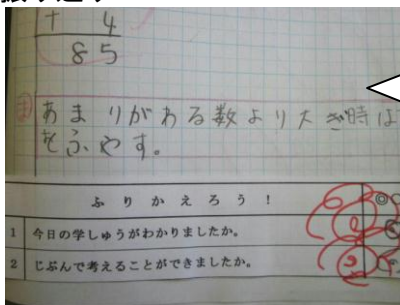 + 4
85
ま あまりがわる数より大き時は
をふやす。
ふりかえろう!
1 今日の学しゅうがわかりましたか。
2 じぶんで考えることができましたか。